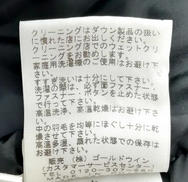 クリーニングはダウン製品の扱い
に慣れた店にお出しください。
クリーニング店でのウェットクリ
ーニングはお避け下さい。
家庭用洗濯機のご使用はお避け下
さい。
すすぎ洗いは十分にして下さい。
洗濯の際は、必ず面ファスナー、
ファスナー、ボタンを止めた状態
で行って下さい。
高温洗浄、高温乾燥はお避け下さ
い。
中の羽毛を均等にほぐし十分に乾
燥させて下さい。
高温多湿、蒸れた状態での保存は
お避け下さい。
販売 (株) ゴールドウイン
(カスタマー